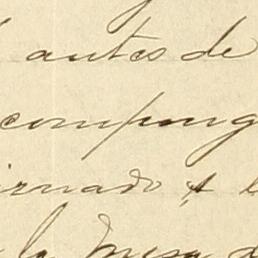 antes de
compung
irmado y
la Mesa d